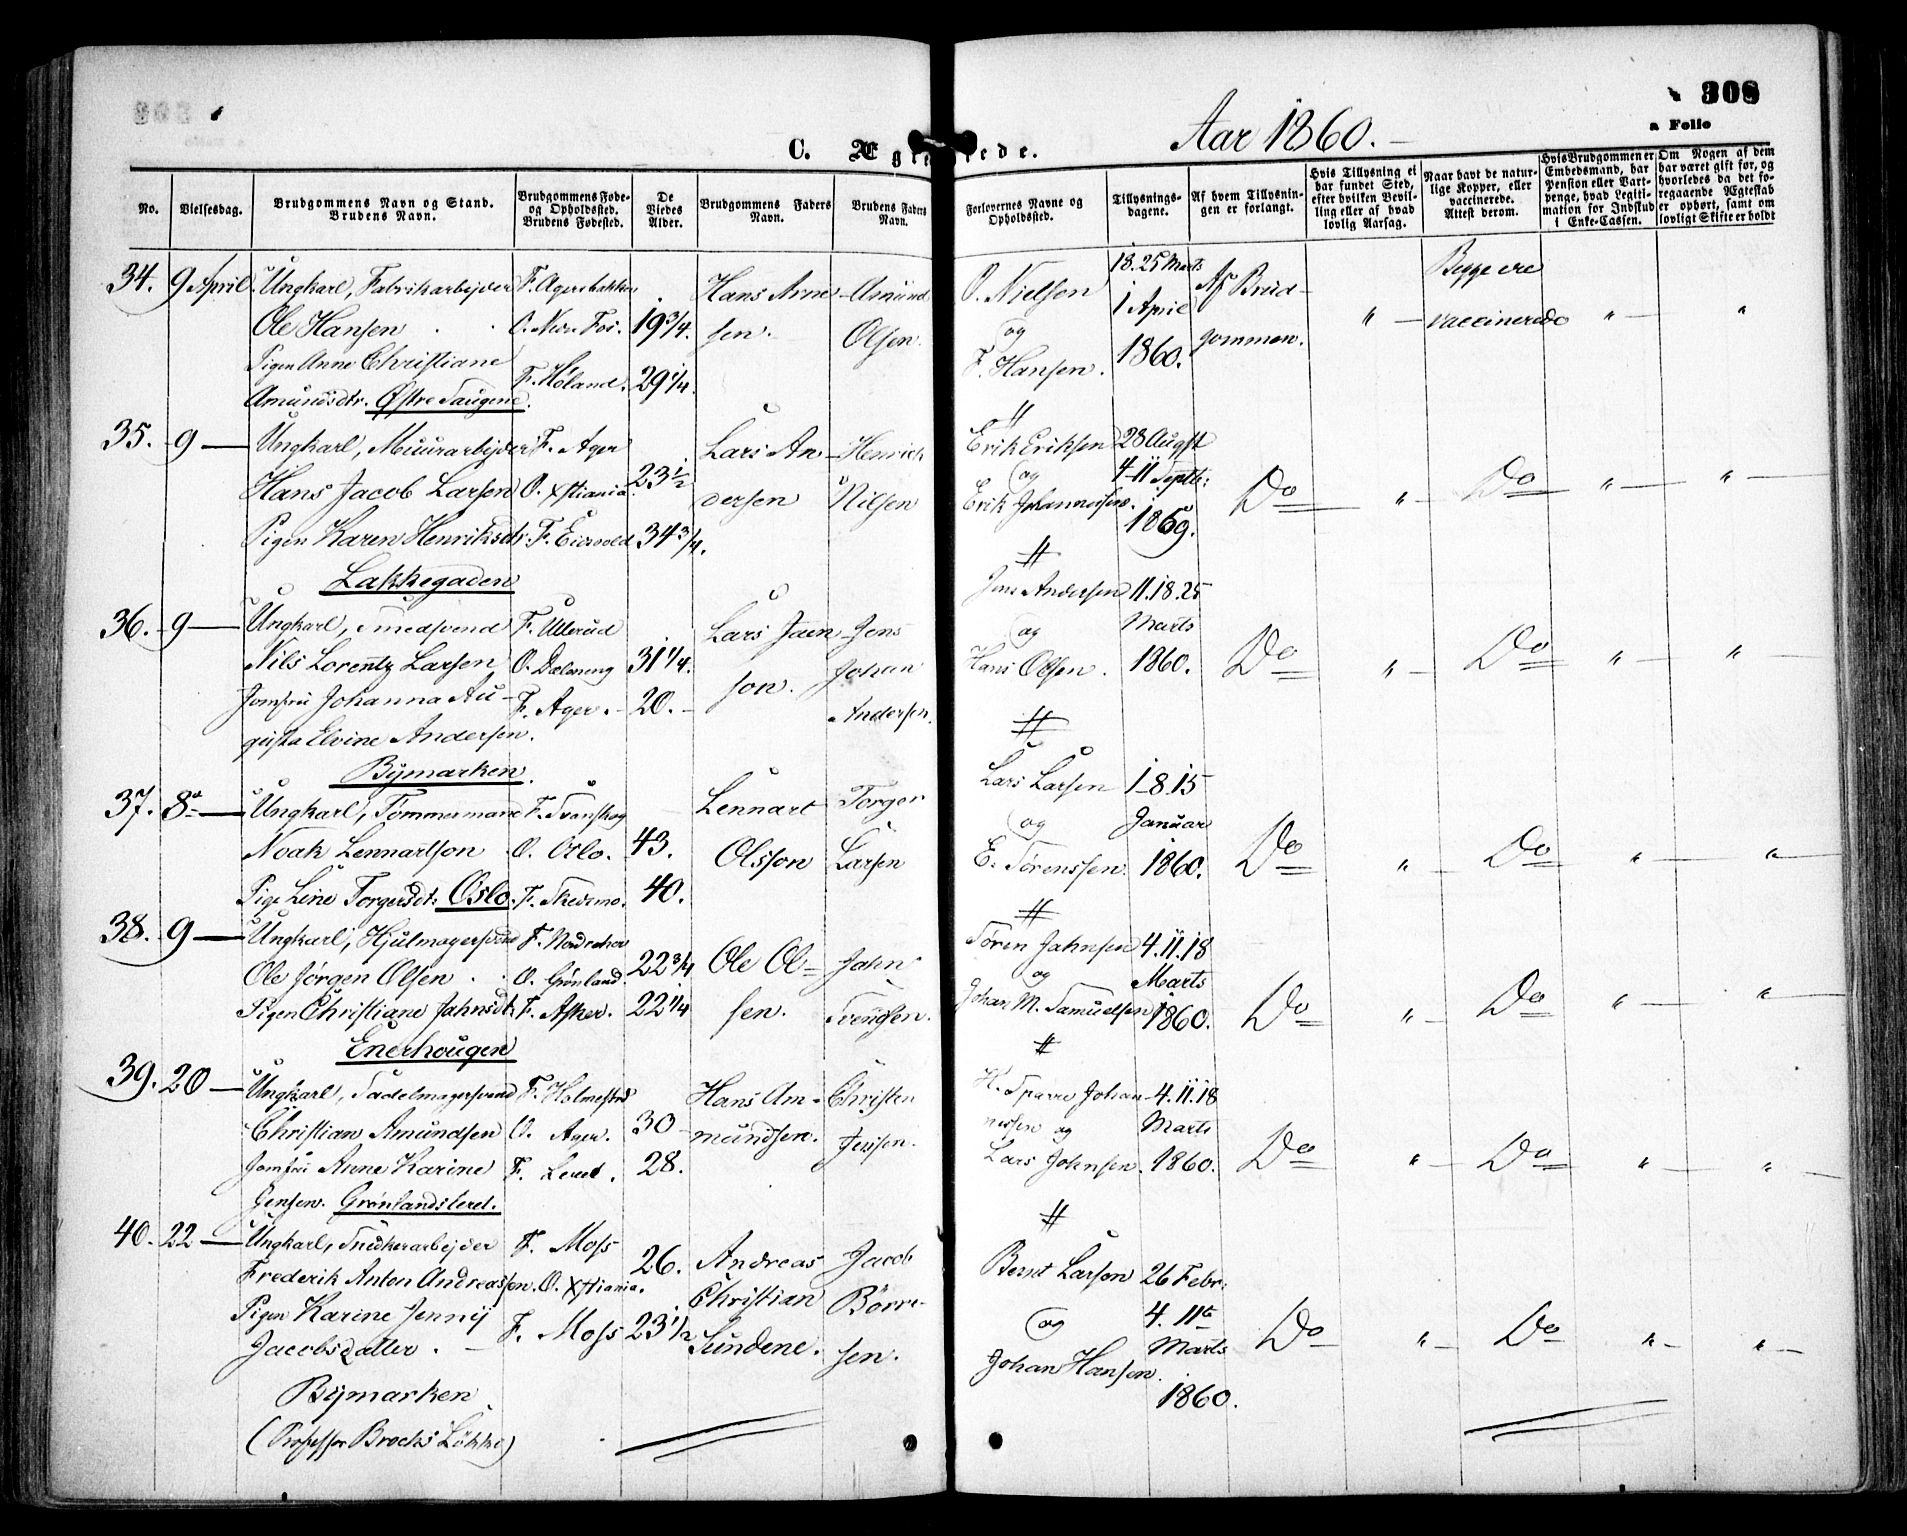 Aar 1860.
308
a Folio
C. Ægteviede.
No.
Vielsesdag.
Brudgommens Navn og Stand.
Brudens Navn.
Brudgommens Føde-
og Opholdssted.
Brudens Fødested.
De
Viedes
Alder.
Brudgommens Faders
Navn.
Brudens Faders
Navn.
Forlovernes Navne og
Opholdssted.
Tillysnings-
dagene.
Af hvem Tillysnin-
gen er forlangt.
Hvis Tillysning ei
har fundet Sted,
efter hvilken Bevil-
ling eller af hvad
lovlig Aarsag.
Naar havt de natur-
lige Kopper, eller
vaccinerede.
Attest derom.
Hvis Brudgommen er
Embedsmand, har
Pension eller Vart-
penge, hvad Legiti-
mation for Indskud
i Enke-Cassen.
Om Nogen af dem
har været gift før, og
hvorledes da det fo-
regaaende Ægteskab
er ophørt, samt om
lovligt Skifte er holdt
34. 9 April. Ungkarl, Fabrikarbejder F. Agersbakken Hans Arne- Amund O. Nielsen 18. 25 Marts Af Brud- " Begge ere " "
Ole Hansen O. Nor. Fos. 19 3/4. sen. Olsen. og 1 April gommen. vaccinerede
Pigen Anne Christiane F. Høland. 29 1/4. F. Hansen. 1860.
Amundsdtr. Østre Saugene.
35. 9 — Ungkarl, Muurarbejder F. Ager Lars An- Henrich Erik Eriksen 28 Augst
Hans Jacob Larsen O. Xstiania. 23 1/2 dersen Nilsen og 4-11 Septbr: Do " Do " "
Pigen Karen Henriksdtr. F. Eidsvold 34 3/4. Erik Johannessen. 1859.
Lakkegaden
36. 9 — Ungkarl, Smedsvend F. Ullerud Lars Jaen- Jens Jens Andersen 11. 18. 25
Nils Lorentz Larsen O. Dælening 31 1/4. son. Johan og Marts Do " Do " "
Jomfru Johanna Au- F. Ager. 20. Andersen. Hans Olsen. 1860.
gusta Elvine Andersen.
Bymarken.
37. 8de — Ungkarl, Tømmermand F. Svanskog Lennart Torger Lars Larsen 1-8. 15
Noak Lennartson O. Oslo. 43. Olsson Larsen og Januar Do " Do " "
Pige Line Torgersdt. Oslo. F. Skedsmo. 40. E. Sørenssen. 1860.
38. 9 — Ungkarl, Hjulmagersvend F. Nordrehov Ole Ol- Jahn Søren Jahnsen 4. 11. 18
Ole Jørgen Olsen O. Grønland. 22 3/4 sen. Svendsen. og Marts Do " Do " "
Pigen Christiane Jahnsdt. F. Asker. 22 1/4 Johan M. Samuelsen 1860.
Enerhougen
39. 20 — Ungkarl, Sadelmagersvend F. Holmestrd Hans Am- Christen H. Sparre Johan- 4. 11. 18
Christian Amundsen O. Ager. 30 mundsen. Jenssen. nessen og Marts Do " Do " "
Jomfru Anne Karine F. Leret. 28. Lars Johnsen. 1860.
Jensen. Grønlandsleret.
40. 22 — Ungkarl, Snedkerarbejder F. Moss 26. Andreas Jacob Bernt Larson 26 Febr:
Frederik Anton Andreassen. O. Xstiania. Christian Børre- og 4. 11te Do " Do " "
Pigen Karine Jenny F. Moss 23 1/2 Sundene. sen. Johan Hansen. Marts
Jacobsdatter. 1860.
Bymarken
(Professor Brochs Løkke)